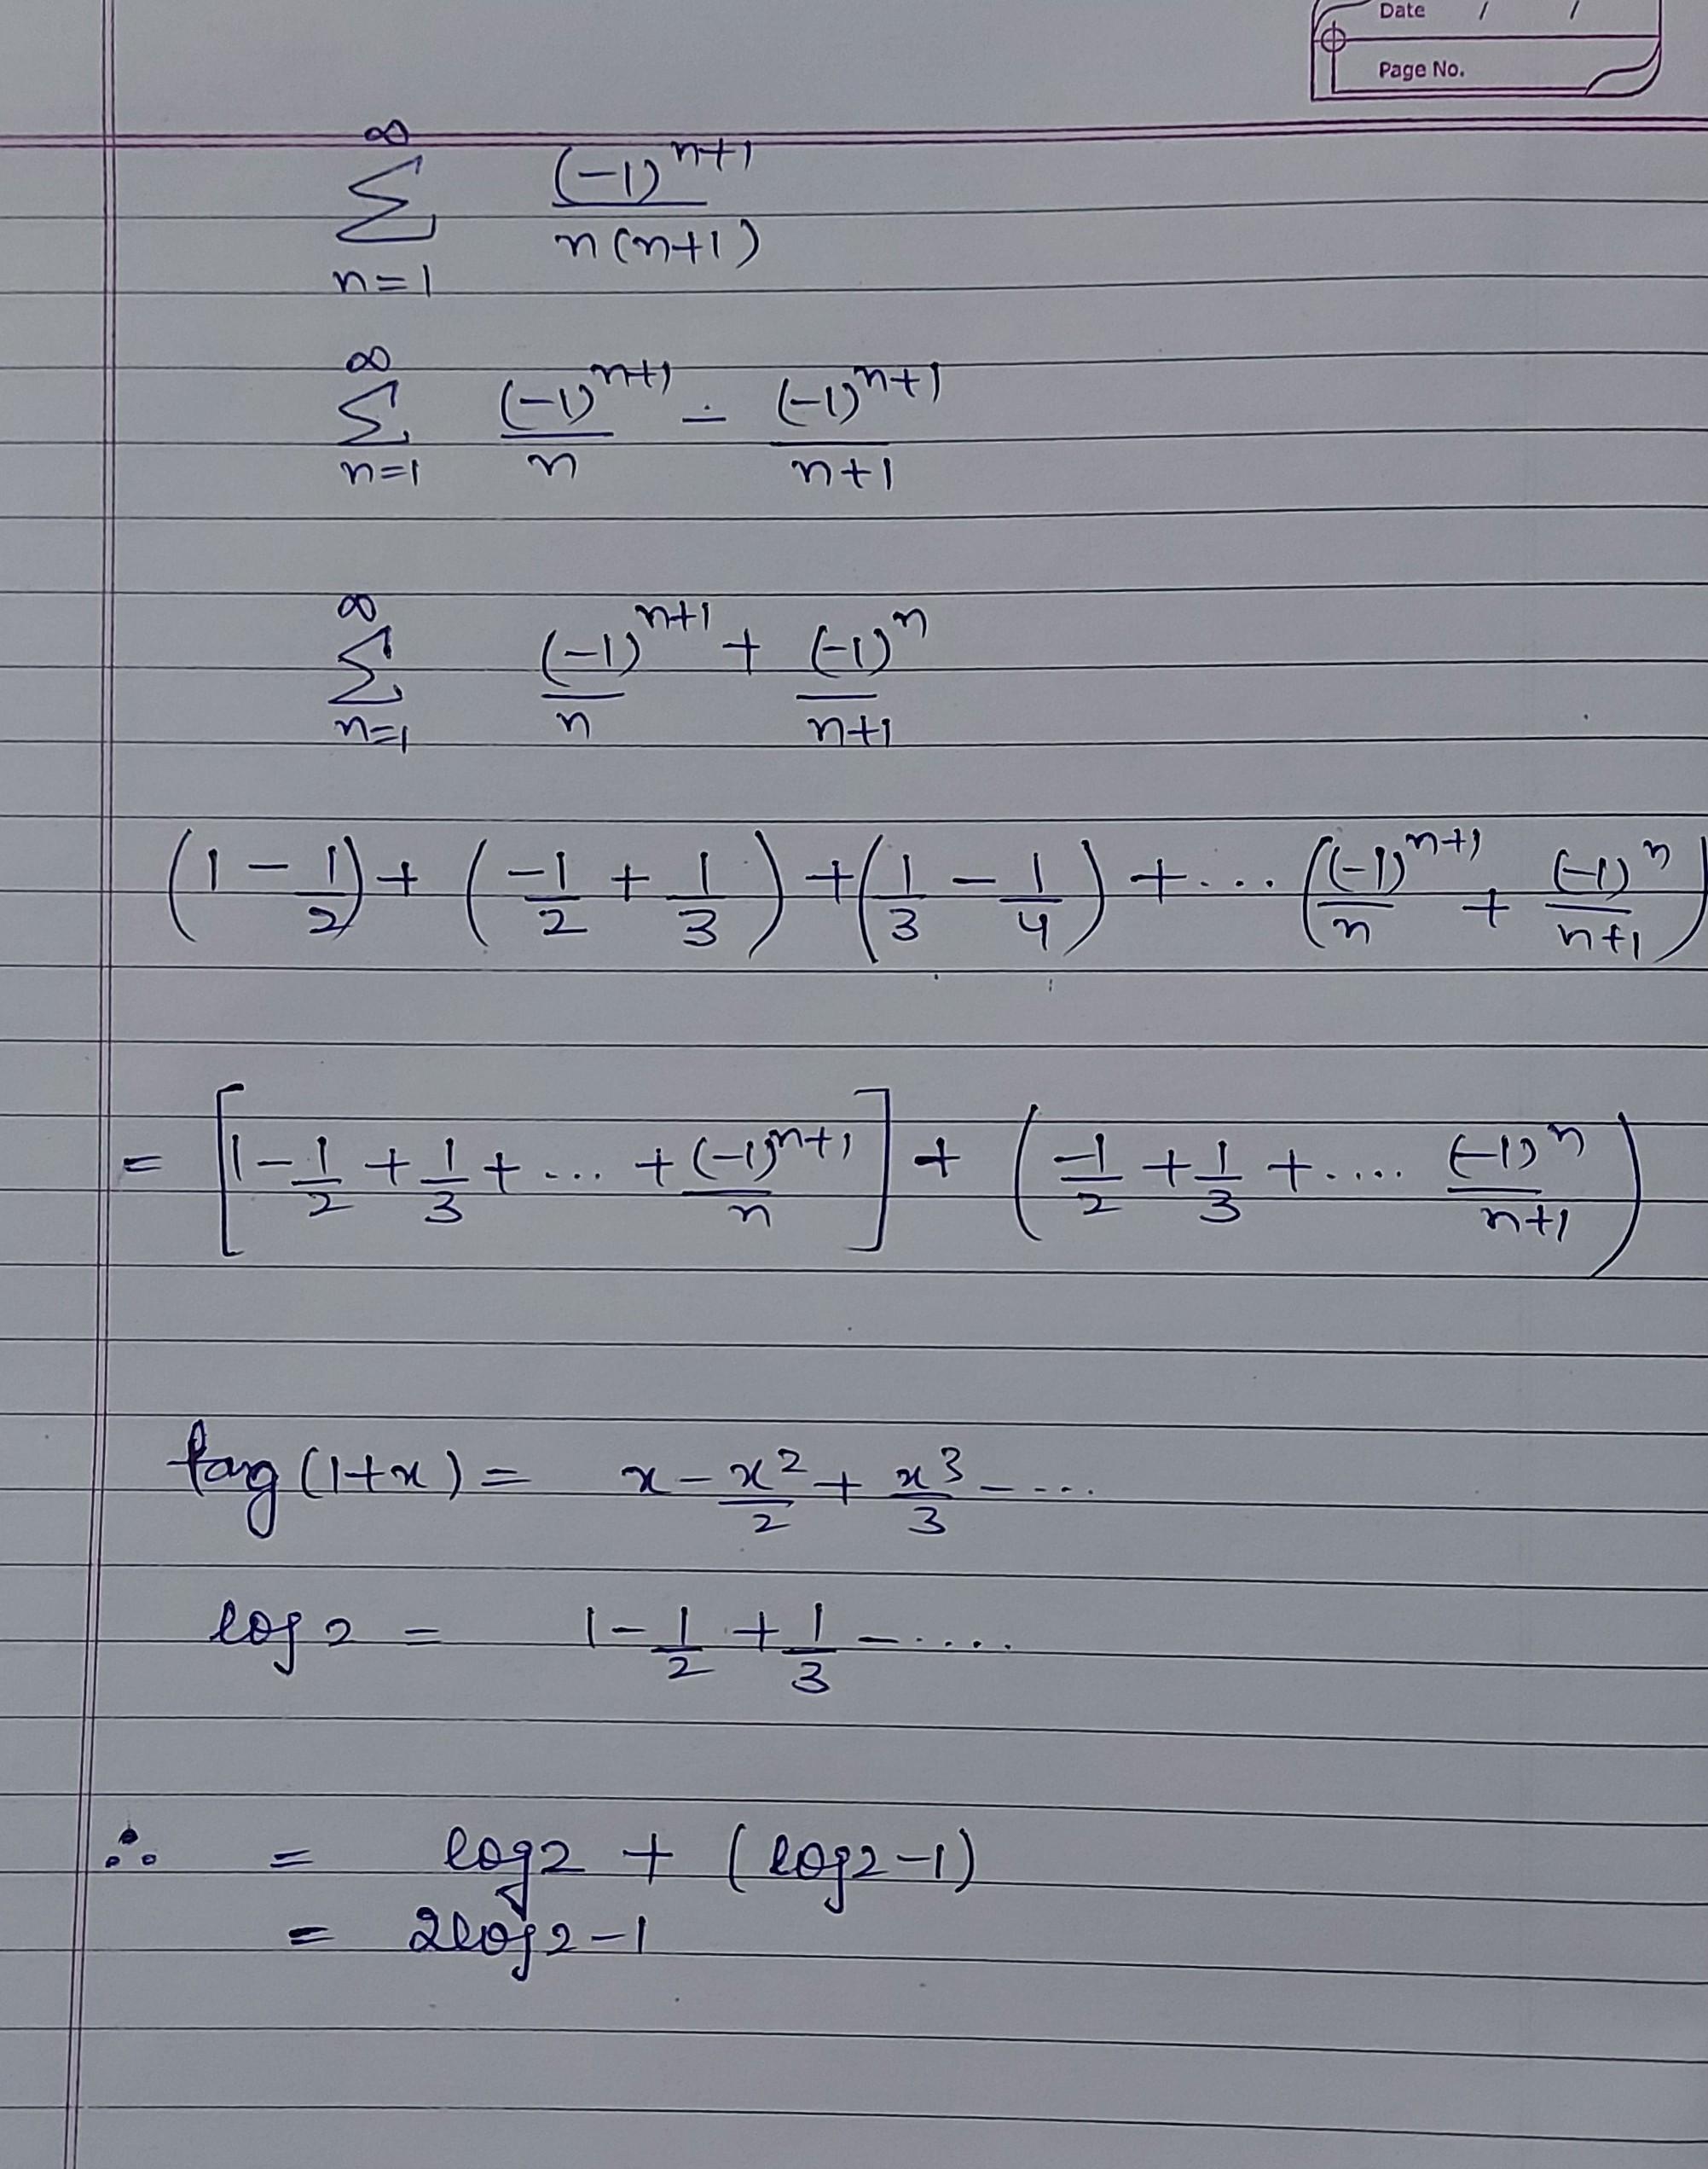 Date / /
Page No.
∞ Σ n=1 (-1)^{n+1} / n(n+1)
∞ Σ n=1 (-1)^{n+1} / n - (-1)^{n+1} / n+1
∞ Σ n=1 (-1)^{n+1} / n + (-1)^n / n+1
(1 - 1/2) + (-1/2 + 1/3) + (1/3 - 1/4) + ... ((-1)^{n+1} / n + (-1)^n / n+1)
= [1 - 1/2 + 1/3 + .... + (-1)^{n+1} / n] + (-1/2 + 1/3 + .... (-1)^n / n+1)
log (1+x) = x - x^2/2 + x^3/3 - ....
log 2 = 1 - 1/2 + 1/3 - .....
∴ = log2 + (log2-1)
= 2log2-1